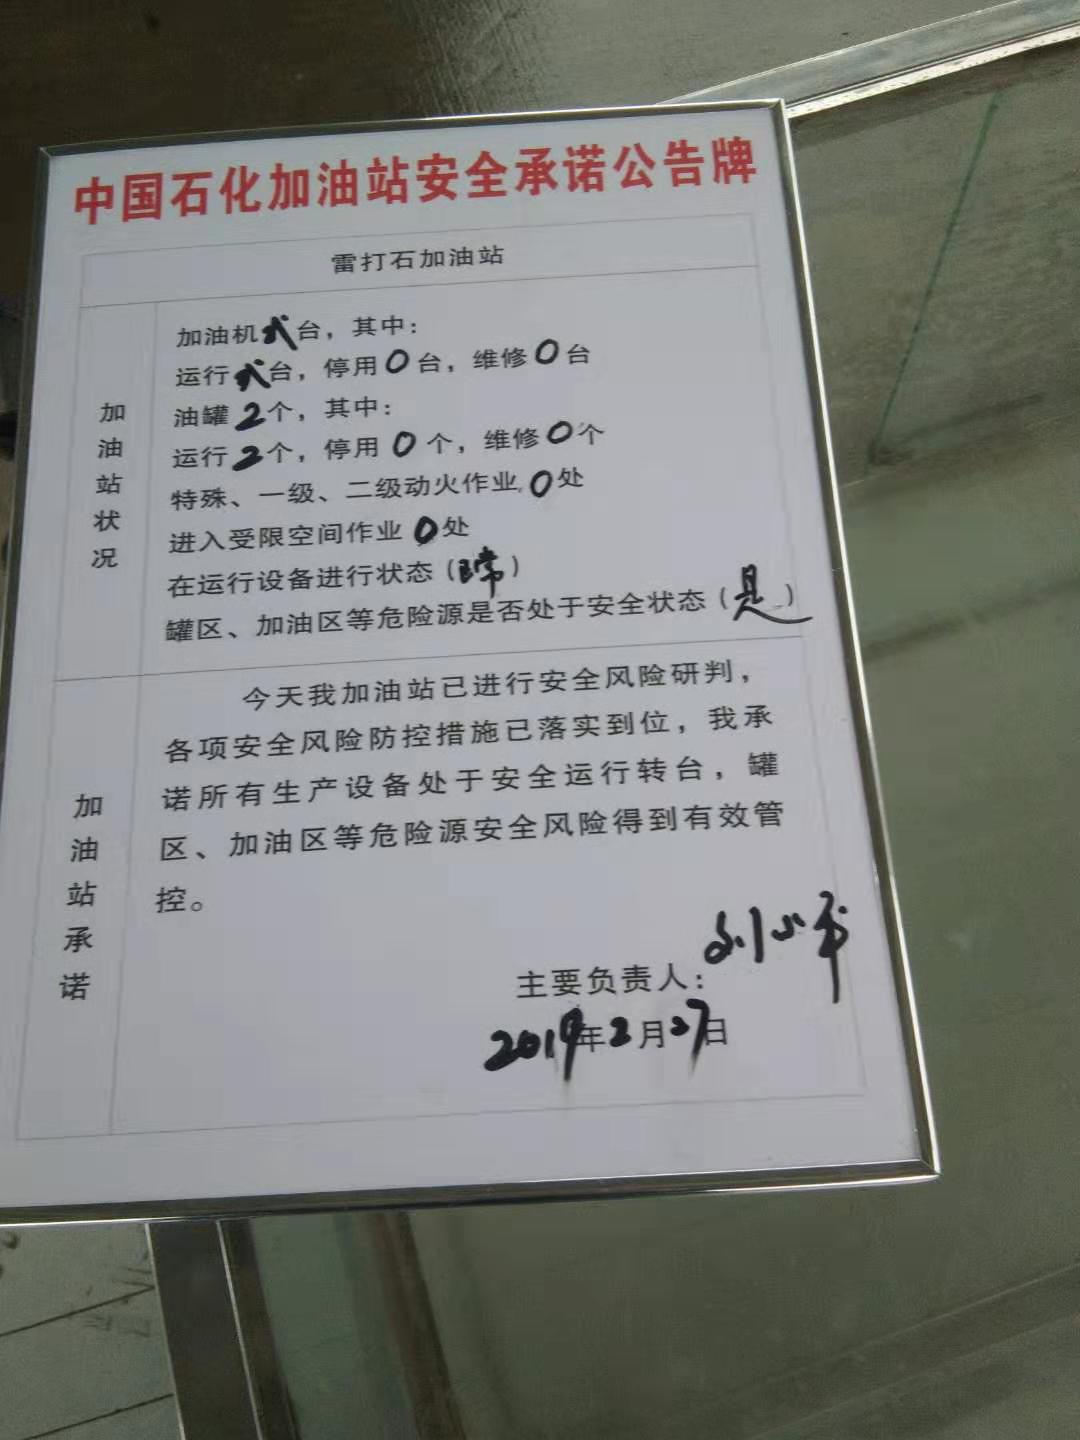 中国石化加油站安全承诺公告牌
雷打石加油站
加油站状况
加油机弍台，其中：
运行弍台，停用0台，维修0台
油罐2个，其中：
运行2个，停用0个，维修0个
特殊、一级、二级动火作业0处
进入受限空间作业0处
在运行设备进行状态（正常）
罐区、加油区等危险源是否处于安全状态（是）
加油站承诺
今天我加油站已进行安全风险研判，
各项安全风险防控措施已落实到位，我承
诺所有生产设备处于安全运行转台，罐
区、加油区等危险源安全风险得到有效管
控。
主要负责人：刘小平
2019年2月27日